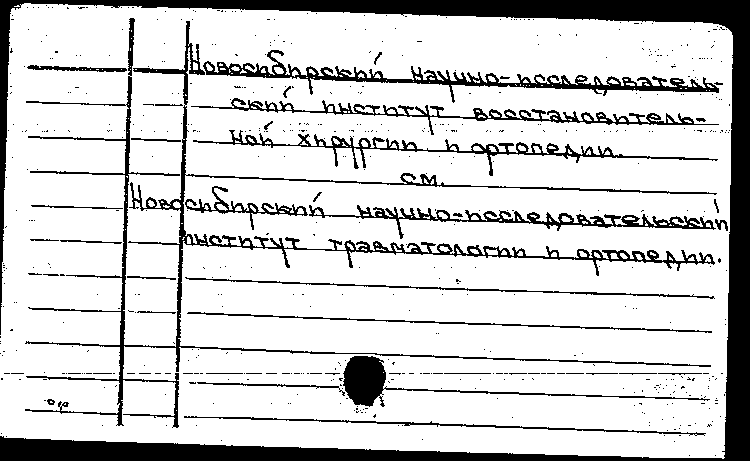 Новосибирский научно-исследователь-
ский институт восстановитель-
ной хирургии и ортопедии.
см.
Новосибирский научно-исследовательский
институт травматологии и ортопедии.